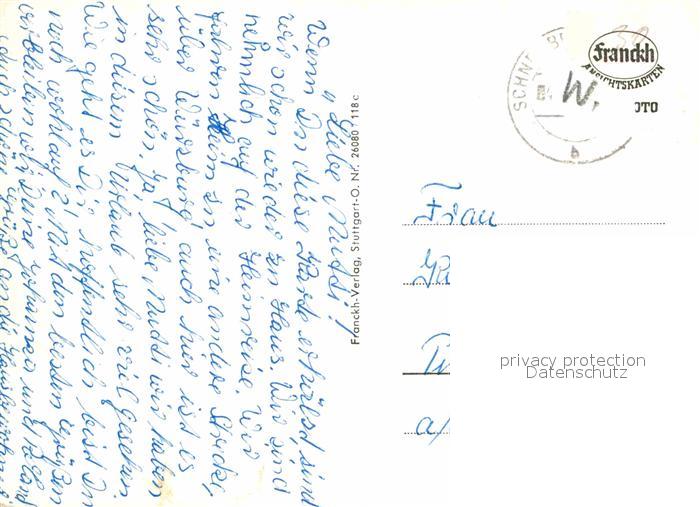 Liebe Mutti!
Wenn Du diese Karte erhälst, sind
wir schon wieder zu Haus. Wir sind
nehmlich auf der Heimreise. Wir
fahren Heim zu, eine andere Strecke,
über Würzburg, auch hier ist es
sehr schön. Ja, liebe Mutti wir haben
in diesem Urlaub sehr viel gesehen.
Wie geht es Dir, hoffentlich bist Du
noch wohlauf? Mit den besten Grüßen
verbleiben wir Deine Johanna und
Franckh-Verlag, Stuttgart-O. Nr. 26080/118c
Franckh
ANSICHTSKARTEN
OTO
W.
Frau
a/
privacy protection
Datenschutz